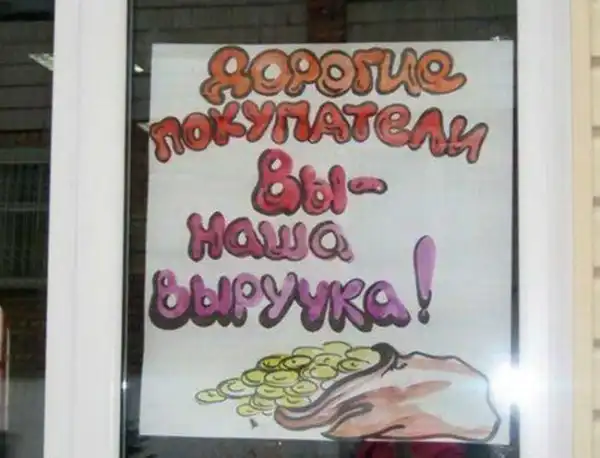 ДОРОГИЕ
ПОКУПАТЕЛИ
ВЫ-
наша
выручка!